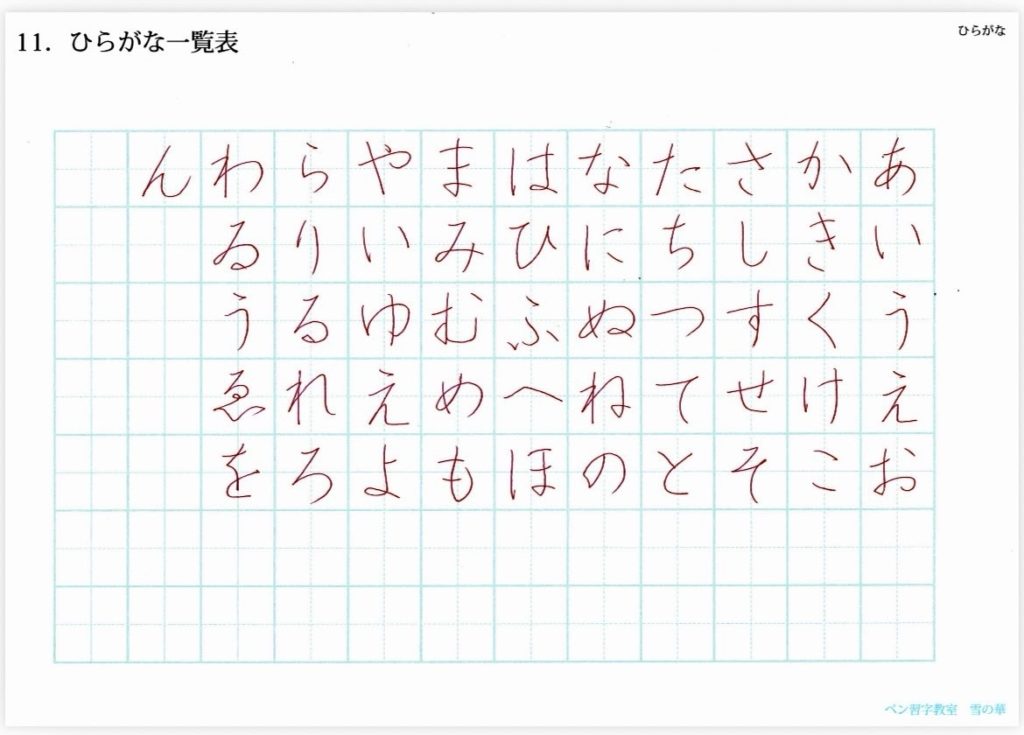 11. ひらがな一覧表
ひらがな
あいうえお
かきくけこ
さしすせそ
たちつてと
なにぬねの
はひふへほ
まみむめも
やいゆえよ
らりるれろ
わゐうゑを
ん
ペン習字教室 雪の華